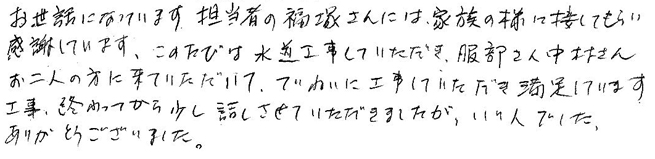 お世話になっています 担当者の福塚さんには、家族の様に接してもらい
感謝しています、このたびは水道工事していただき、服部さん中村さん
お二人の方に来ていただいて、ていねいに工事していただき満足しています
工事、終わってから少し話しさせていただきましたが、いい人でした、
ありがとうございました。